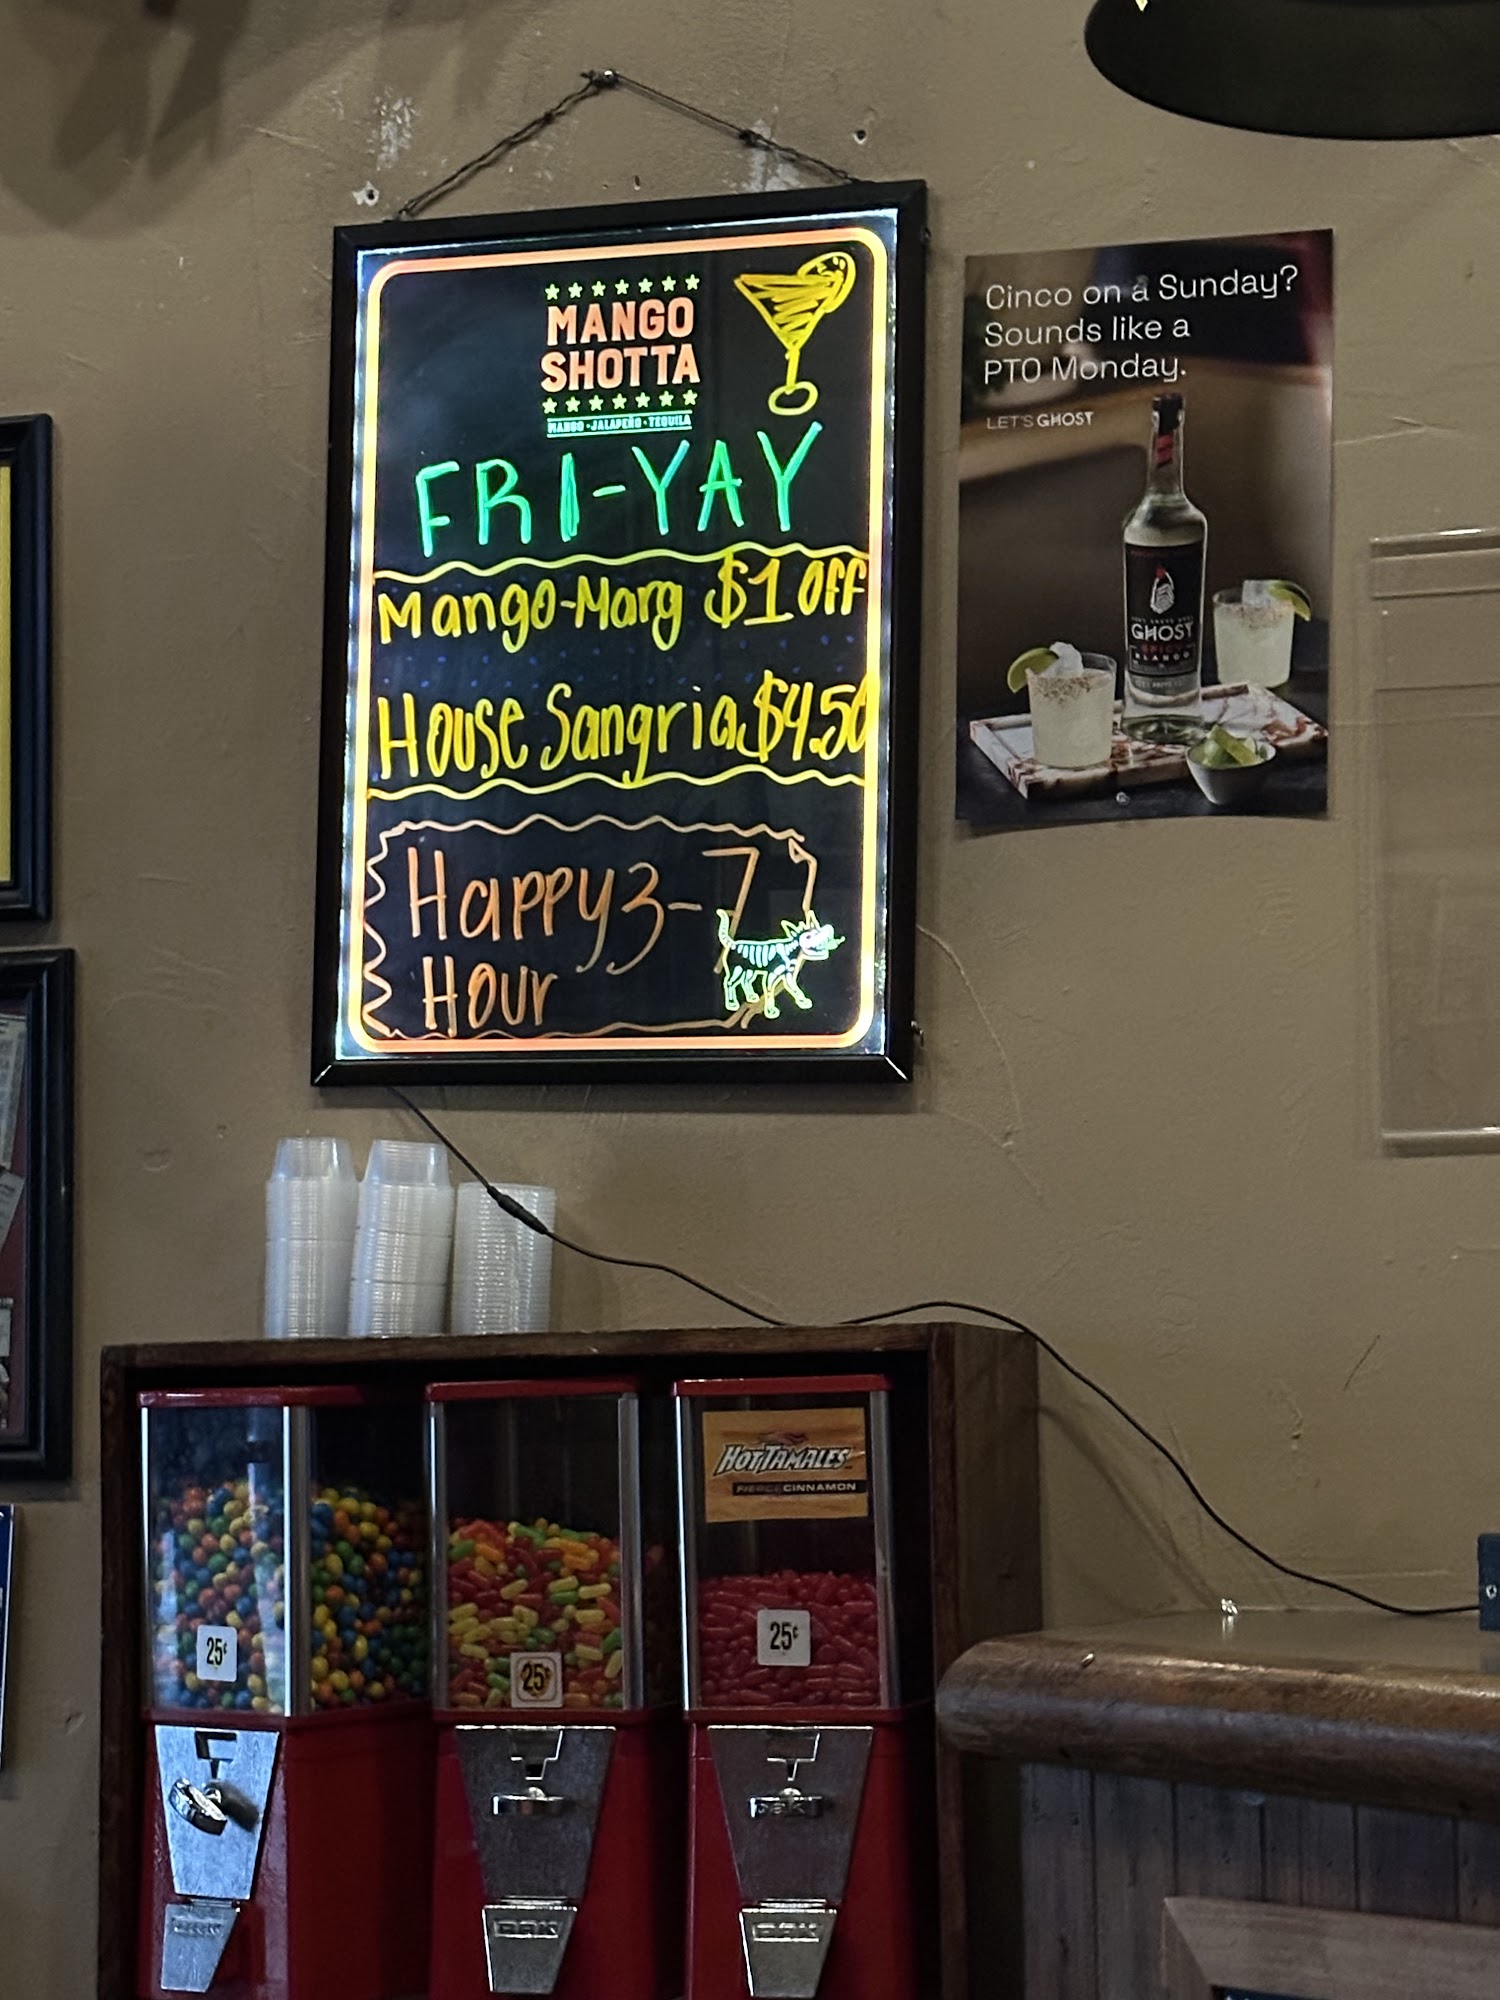 MANGO
SHOTTA
MANGO · JALAPEÑO · TEQUILA
FRI-YAY
Mango-Marg $1 Off
House Sangria $4.50
Happy 3-7
Hour
Cinco on a Sunday?
Sounds like a
PTO Monday.
LET'S GHOST
GHOST
SPICY
BLANCO
HOT TAMALES
FIERCE CINNAMON
25¢
25¢
25¢